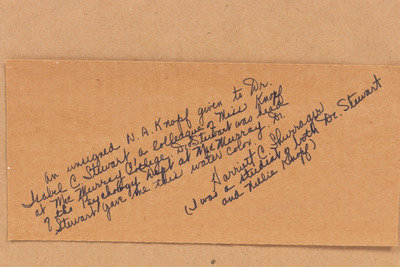 an unsigned N.A. Knopf given to Dr.
Isabel C. Stewart, a colleague of Miss Knopf
at Mac Murray College. Dr. Stewart was head
of the Psychology Dept at MacMurray. Dr.
Stewart gave me this water color.
Harriett C.
(I was a student of both Dr. Stewart
and Nellie Knopf)